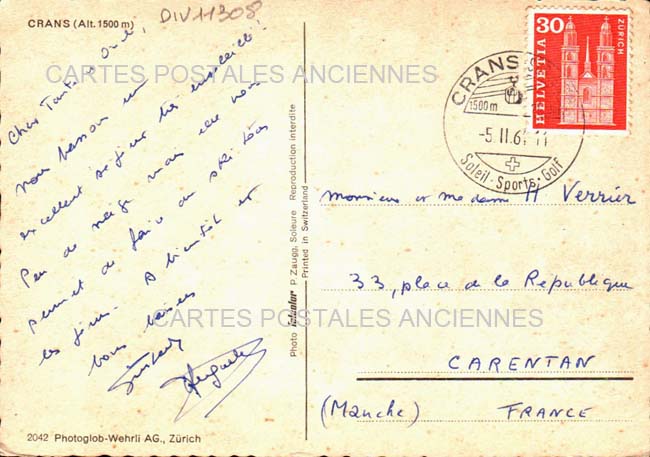 CRANS (Alt. 1500 m)
DIV11308
CARTES POSTALES ANCIENNES
Chers Tante et Oncle,
nous passons un
excellent séjour très ensoleillé !
Peu de neige mais elle nous
permet de faire du ski tous
les jours. A bientôt et
bons baisers
2042 Photoglob-Wehrli AG., Zürich
Photo P. Zaugg, Soleure Reproduction interdite
Printed in Switzerland
30
HELVETIA
ZÜRICH
CRANS
1500 m
-5.II.61-11
Soleil-Sports-Golf
monsieur et madame H Verrier
33, place de la République
CARTES POSTALES ANCIENNES
CARENTAN
(Manche) FRANCE